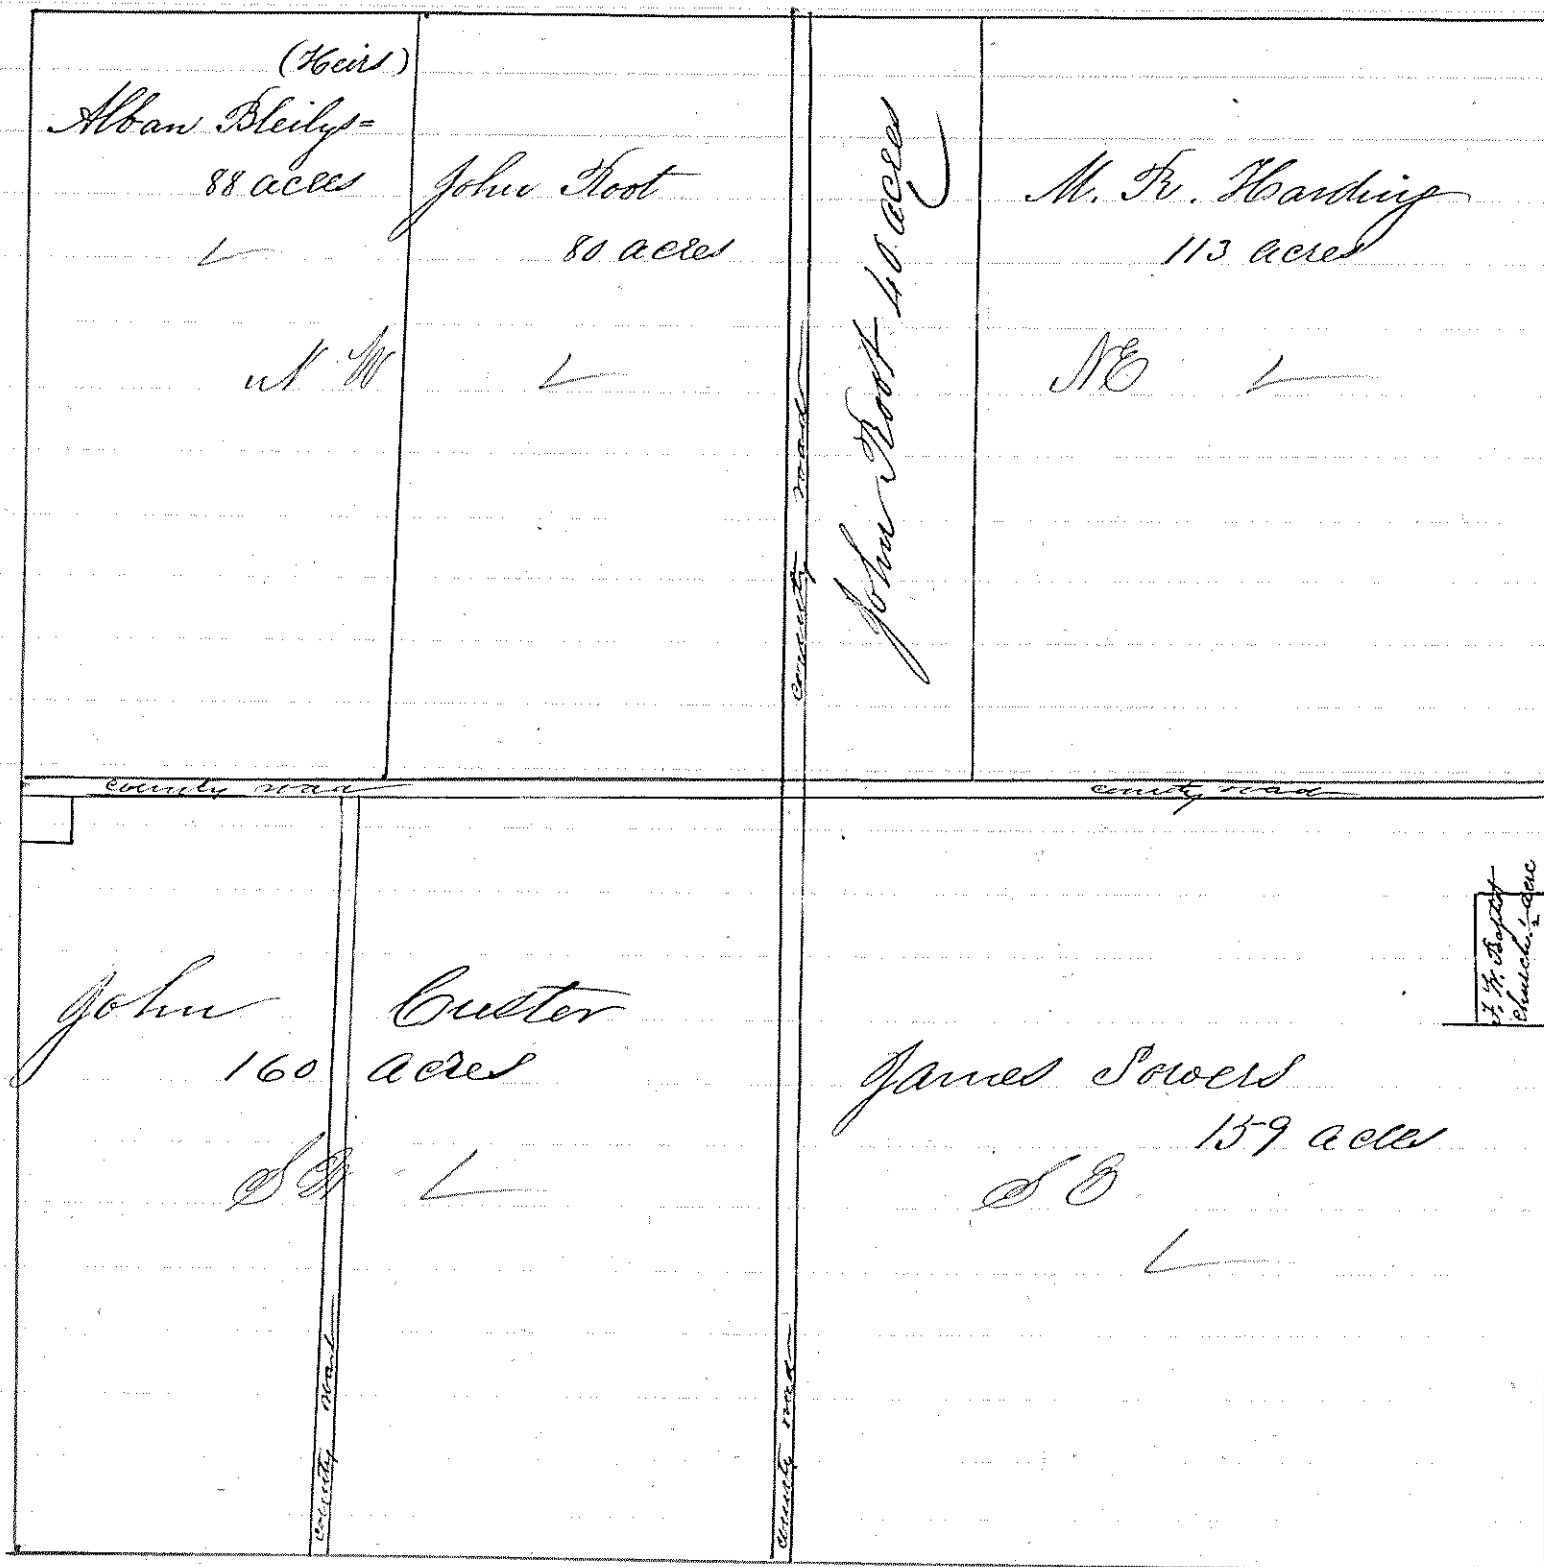 (Heirs)
Alban Bleilys=
88 acres
N W
John Root
80 acres
county road
John Root 40 acres
M. R. Harding
113 acres
NE
county road
county road
John Custer
160 acres
S W
county road
county road
James Sowers
159 acres
S E
F. W. Baptist
church ½ acre